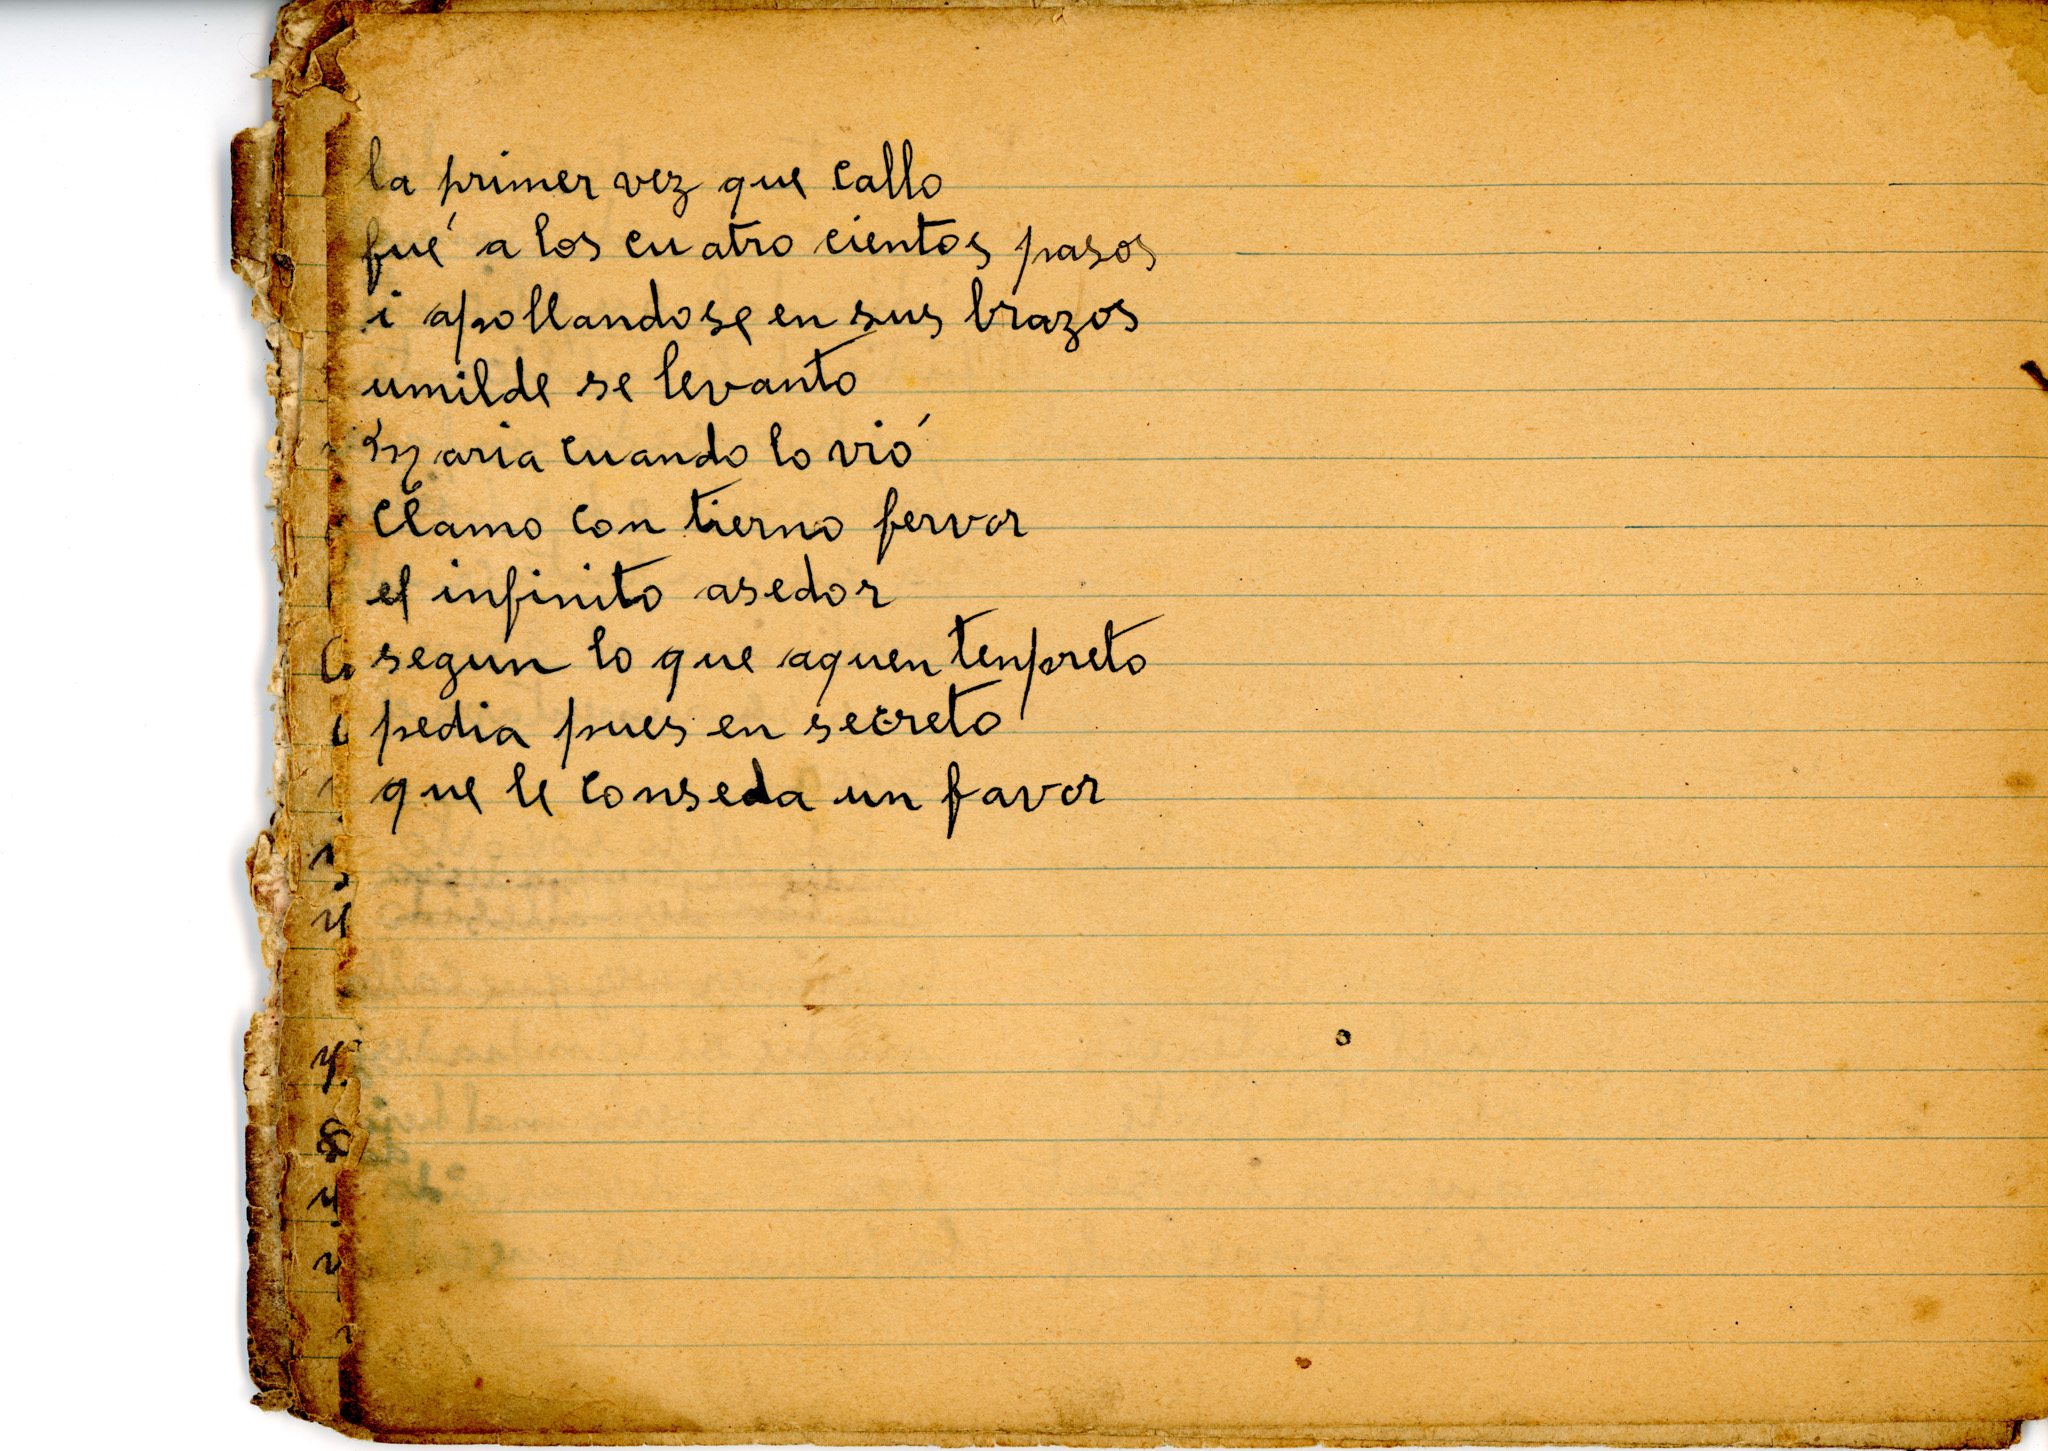 la primer vez que callo
fué a los cuatro cientos pasos
i apollandose en sus brazos
umilde se levanto
Maria cuando lo vió
clamo con tierno fervor
el infinito asedor
segun lo que aquen tenpreto
pedia pues en secreto
que le conseda un favor